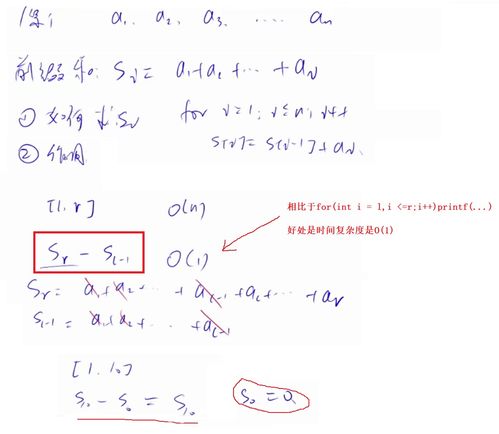 例： a₁. a₂. a₃. ..... aₙ
前缀和: Sᵢ= a₁+a₂+...+aᵢ
① 如何求Sᵢ for i=1; i≤n; i++
S[i]= S[i-1]+aᵢ
② 作用
[l. r] O(n)
相比于for(int i = l,i <=r;i++)printf(...)
好处是时间复杂度是O(1)
Sr - Sl-1 O(1)
Sr= a₁+a₂... +al-1+al+... +ar
Sl-1= a₁+a₂+... +al-1
[1. 10]
S₁₀ - S₀ = S₁₀ S₀ = 0.